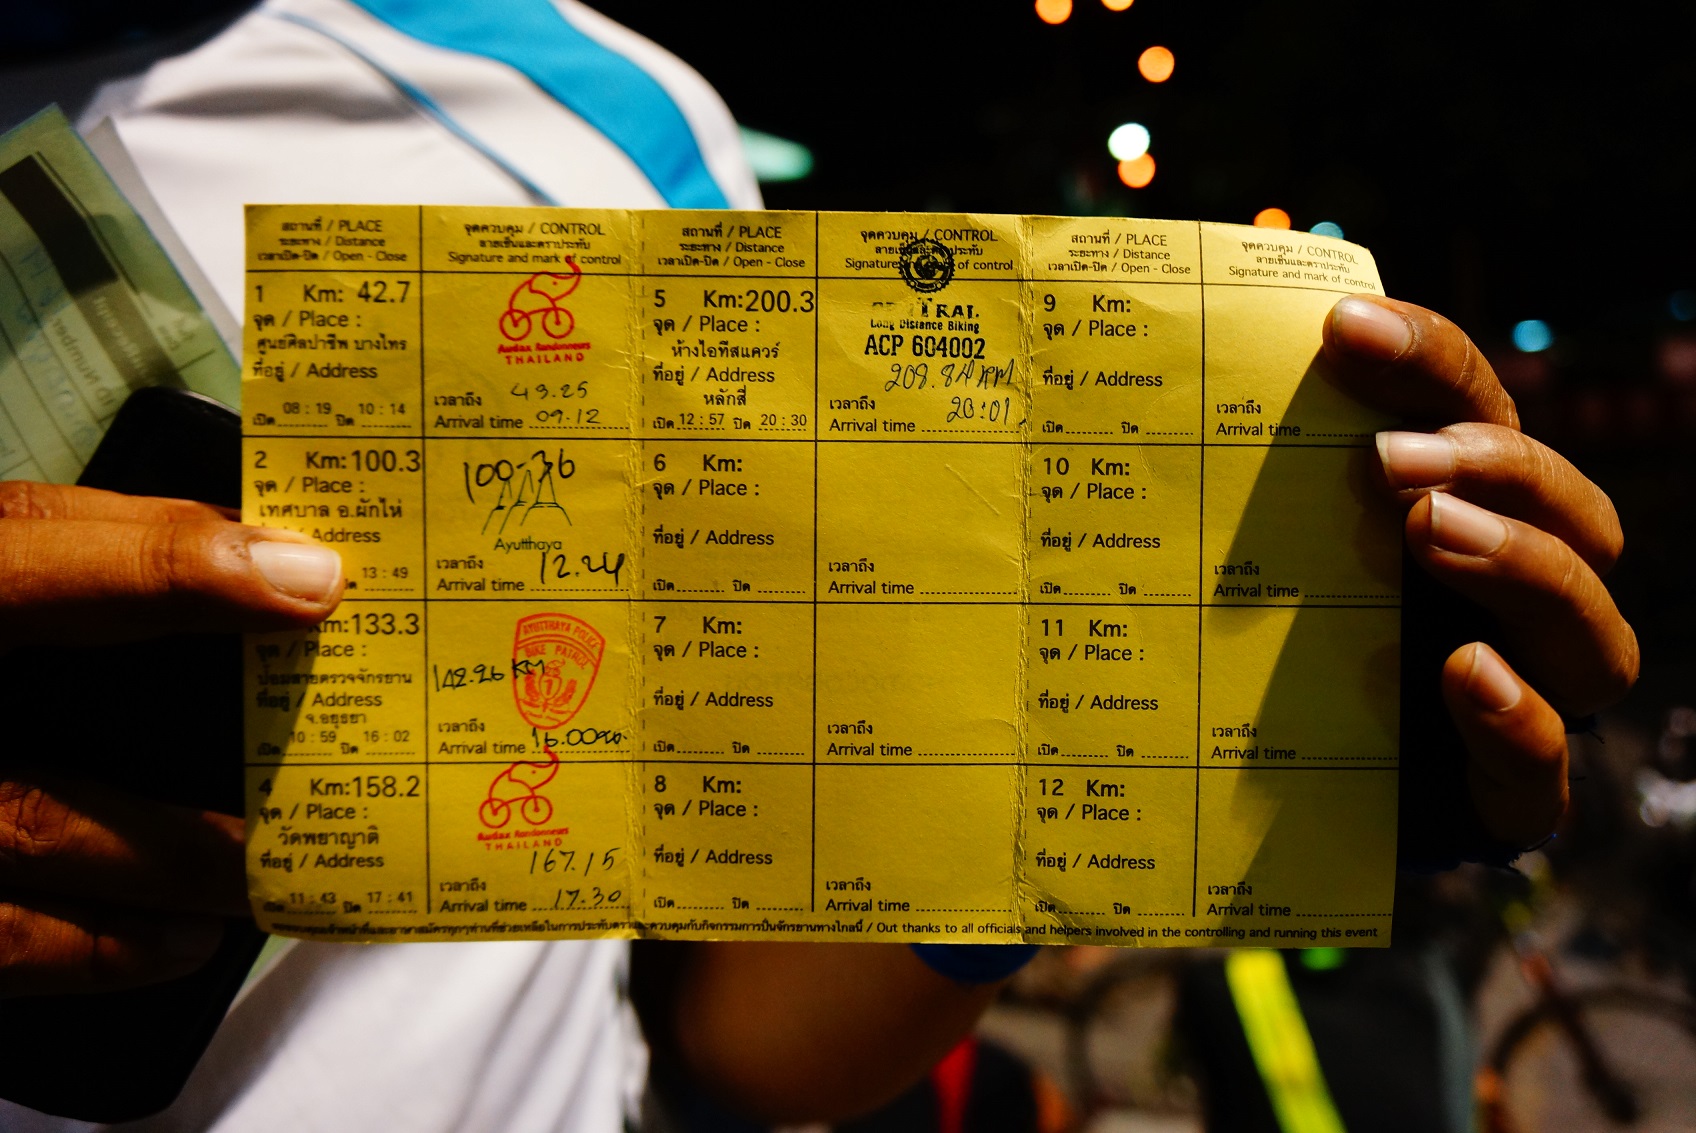 สถานที่ / PLACE
ระยะทาง / Distance
เวลาเปิด-ปิด / Open - Close
จุดควบคุม / CONTROL
ลายเซ็นและตราประทับ
Signature and mark of control
สถานที่ / PLACE
ระยะทาง / Distance
เวลาเปิด-ปิด / Open - Close
จุดควบคุม / CONTROL
ลายเซ็นและตราประทับ
Signature of control
สถานที่ / PLACE
ระยะทาง / Distance
เวลาเปิด-ปิด / Open - Close
จุดควบคุม / CONTROL
ลายเซ็นและตราประทับ
Signature and mark of control
1 Km: 42.7
จุด / Place :
ศูนย์ศิลปาชีพ บางไทร
ที่อยู่ / Address
เปิด 08 : 19 ปิด 10 : 14
Audax Randonneurs
THAILAND
43.25
เวลาถึง
Arrival time 09.12
2 Km: 100.3
จุด / Place :
เทศบาล อ.ผักไห่
Address
13 : 49
100.36
Ayutthaya
เวลาถึง
Arrival time 12.24
Km: 133.3
จุด / Place :
ป้อมสายตรวจจักรยาน
ที่อยู่ / Address
จ.อยุธยา
เปิด 10 : 59 ปิด 16 : 02
AYUTTHAYA POLICE
BIKE PATROL
142.26 KM
เวลาถึง
Arrival time 16.00
4 Km: 158.2
จุด / Place :
วัดพยาญาติ
ที่อยู่ / Address
เปิด 11 : 43 ปิด 17 : 41
Audax Randonneurs
THAILAND
167.15
เวลาถึง
Arrival time 17.30
5 Km: 200.3
จุด / Place :
ห้างไอทีสแควร์
ที่อยู่ / Address
หลักสี่
เปิด 12 : 57 ปิด 20 : 30
Long Distance Biking
ACP 604002
208.84 KM
เวลาถึง 20:01
Arrival time
6 Km:
จุด / Place :
ที่อยู่ / Address
เปิด ปิด
เวลาถึง
Arrival time
7 Km:
จุด / Place :
ที่อยู่ / Address
เปิด ปิด
เวลาถึง
Arrival time
8 Km:
จุด / Place :
ที่อยู่ / Address
เปิด ปิด
เวลาถึง
Arrival time
9 Km:
จุด / Place :
ที่อยู่ / Address
เปิด ปิด
เวลาถึง
Arrival time
10 Km:
จุด / Place :
ที่อยู่ / Address
เปิด ปิด
เวลาถึง
Arrival time
11 Km:
จุด / Place :
ที่อยู่ / Address
เปิด ปิด
เวลาถึง
Arrival time
12 Km:
จุด / Place :
ที่อยู่ / Address
เปิด ปิด
เวลาถึง
Arrival time
ขอขอบคุณเจ้าหน้าที่และอาสาสมัครทุกๆท่านที่ช่วยเหลือในการประทับตราและควบคุมกับกิจกรรมการปั่นจักรยานทางไกลนี้ / Out thanks to all officials and helpers involved in the controlling and running this event